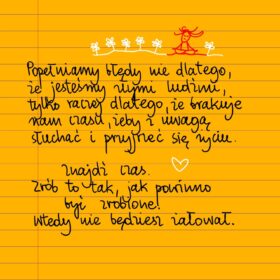 Popełniamy błędy nie dlatego,
że jesteśmy złymi ludźmi,
tylko raczej dlatego, że brakuje
nam czasu, żeby z uwagą
słuchać i przyjrzeć się życiu.
Znajdź czas.
Zrób to tak, jak powinno
być zrobione!
Wtedy nie będziesz żałował.